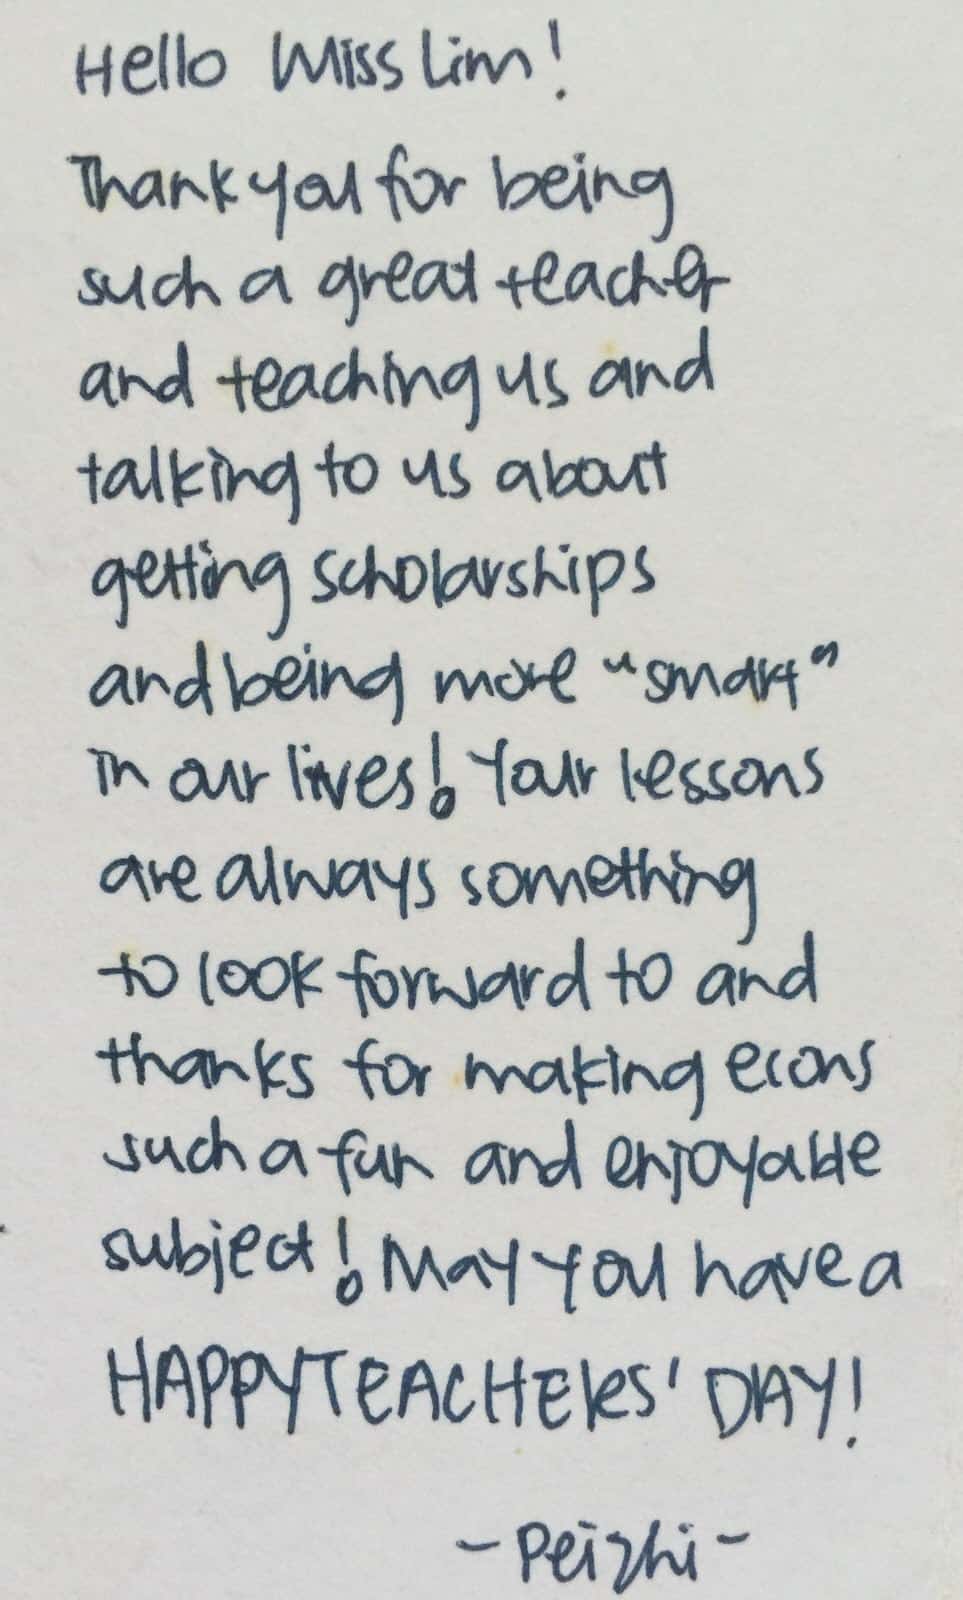 Hello Miss Lim!
Thank you for being
such a great teacher
and teaching us and
talking to us about
getting scholarships
and being more "smart"
in our lives! Your lessons
are always something
to look forward to and
thanks for making econs
such a fun and enjoyable
subject! May you have a
HAPPY TEACHERS' DAY!
- Peizhi -